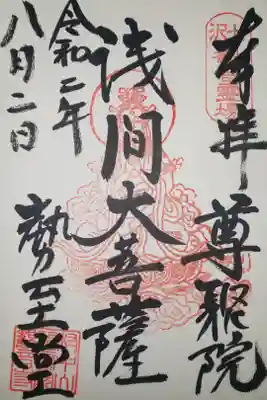 奉拝
浅間大菩薩
勢至堂
令和二年
八月二日